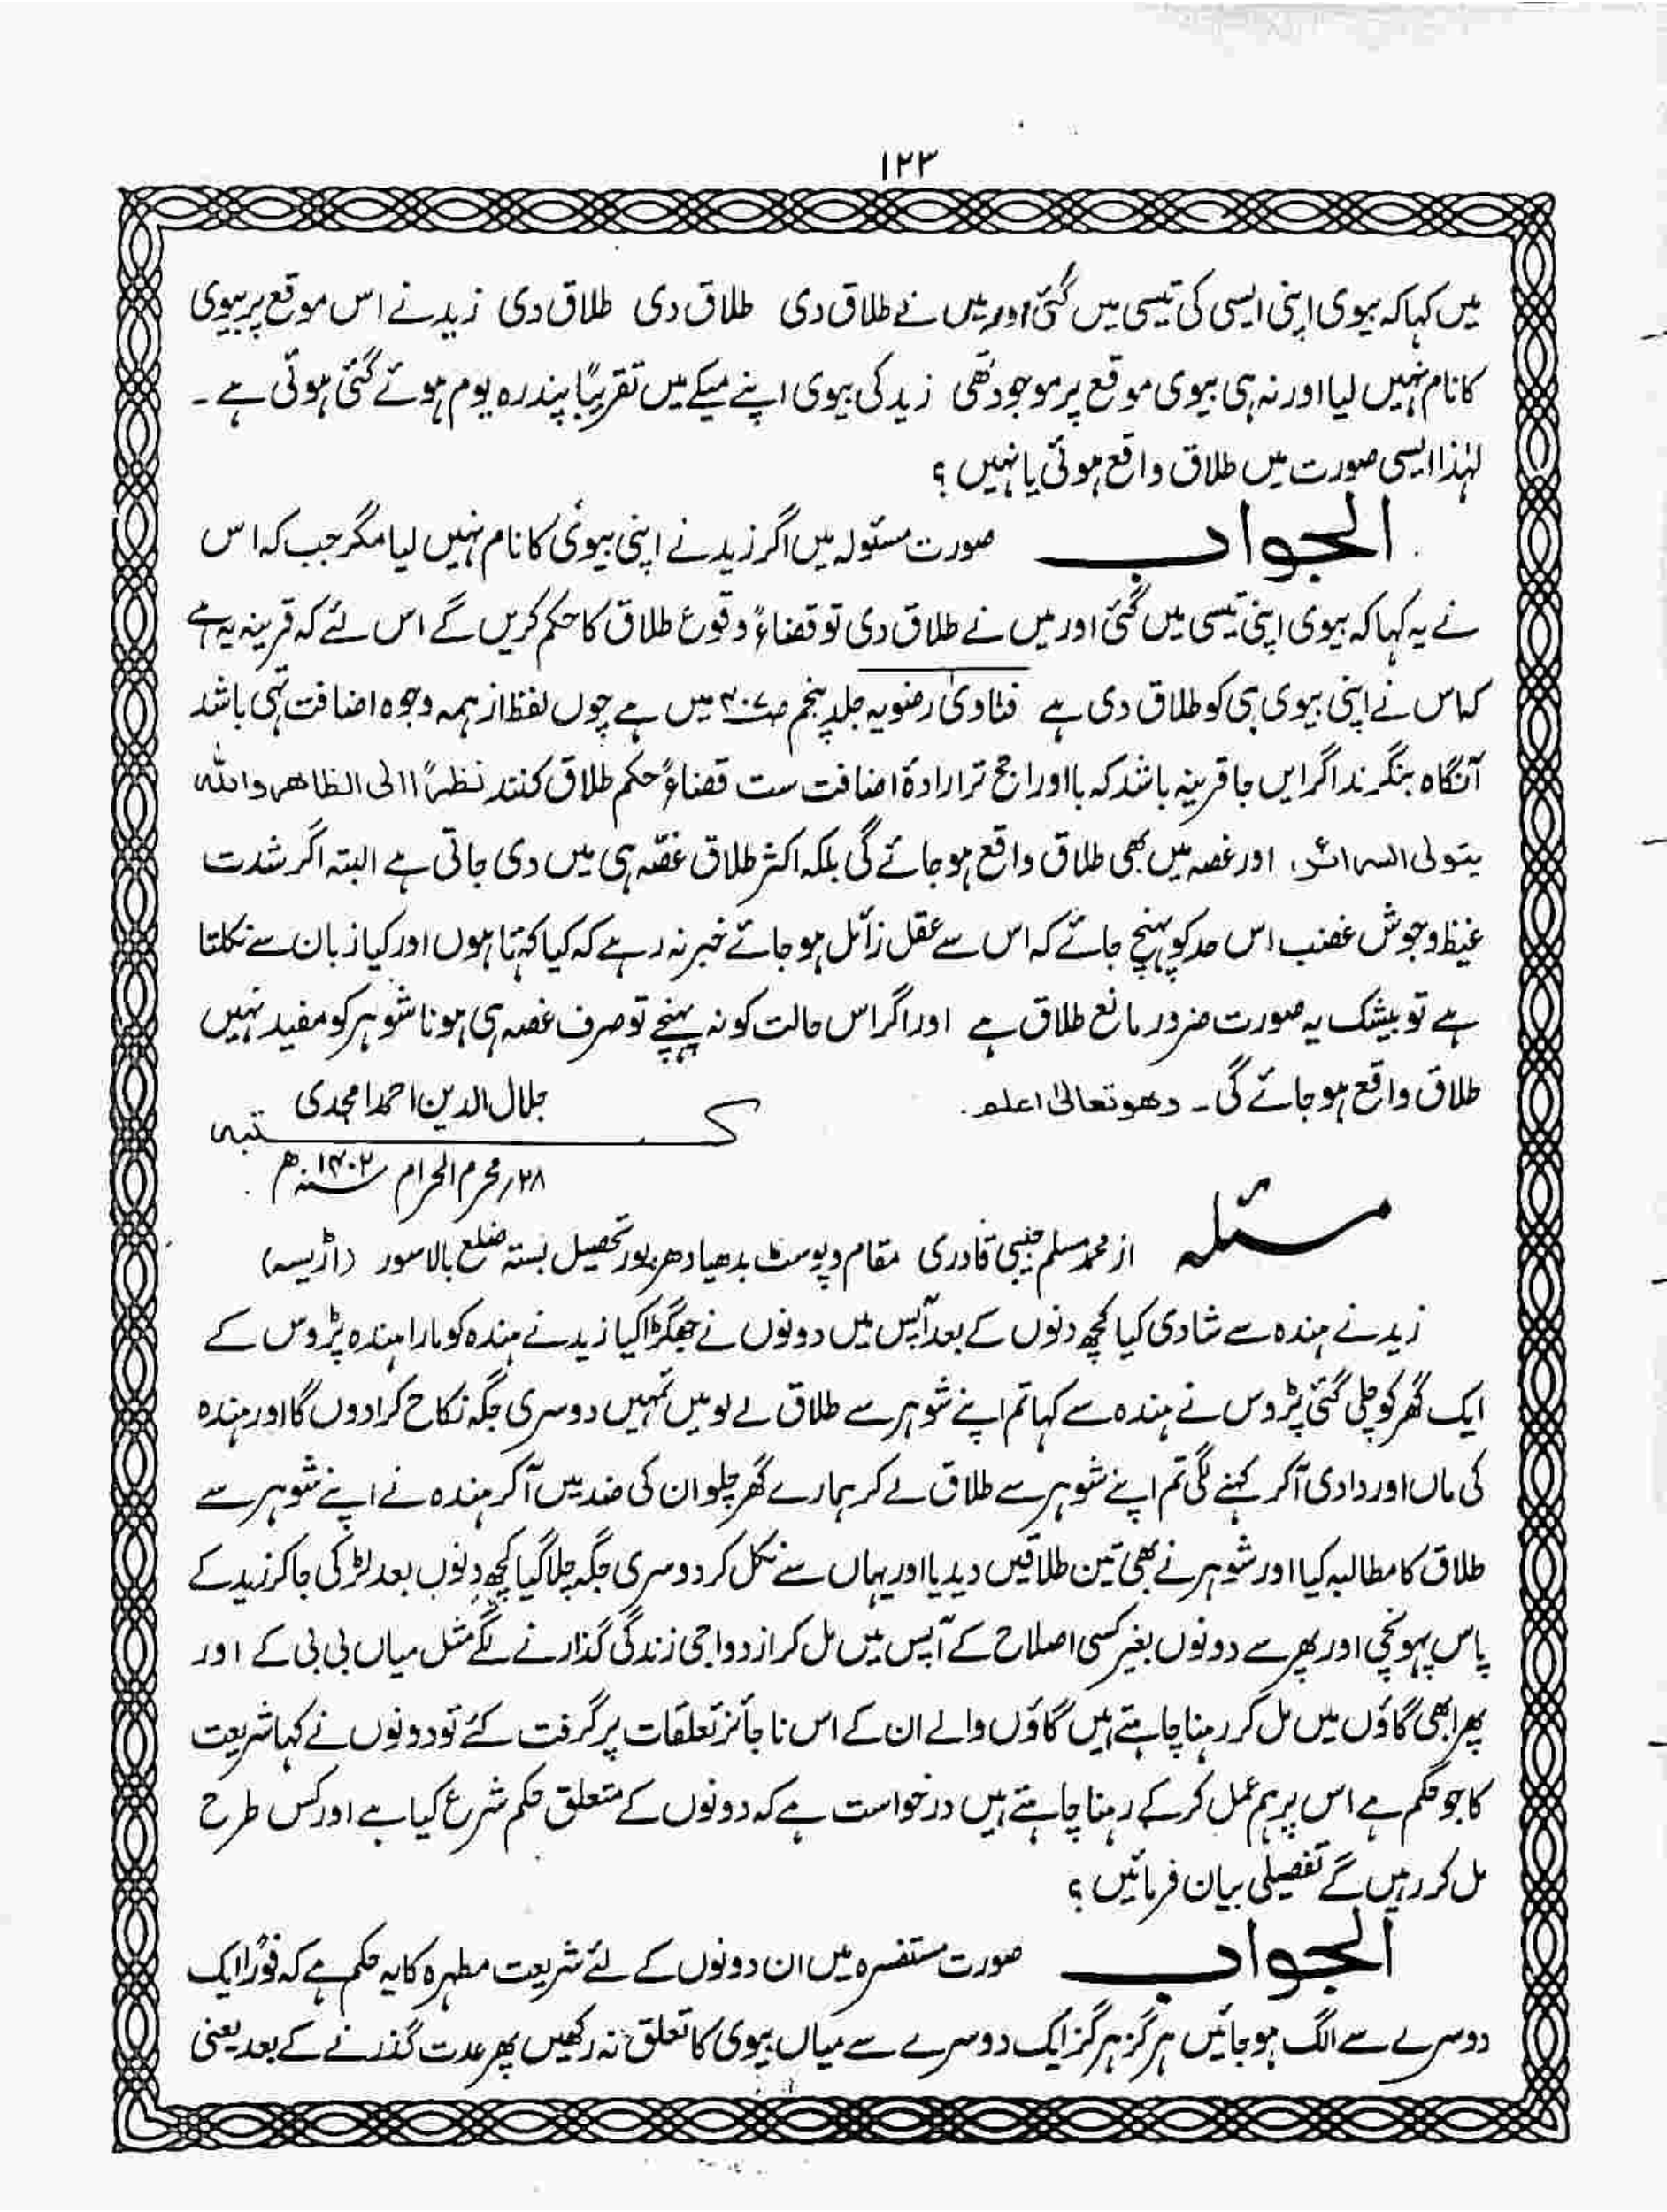 ۱۲۳
میں کہا کہ بیوی اپنی ایسی کی تیسی میں گئی اور میں نے طلاق دی طلاق دی طلاق دی زید نے اس موقع پر بیوی
کا نام نہیں لیا اور نہ ہی بیوی موقع پر موجود تھی زید کی بیوی اپنے میکے میں تقریباً پندرہ یوم ہوئے گئی ہوئی ہے ۔
لہٰذا ایسی صورت میں طلاق واقع ہوئی یا نہیں ؟
الجواب صورت مسئولہ میں اگر زید نے اپنی بیوی کا نام نہیں لیا مگر جب کہ اس
نے یہ کہا کہ بیوی اپنی تیسی میں گئی اور میں نے طلاق دی تو قضاءً وقوع طلاق کا حکم کریں گے اس لئے کہ قرینہ یہ ہے
کہ اس نے اپنی بیوی ہی کو طلاق دی ہے فتاویٰ رضویہ جلد پنجم ص میں ہے چوں لفظ از ہمہ وجوہ اضافت تہی باشد
آنگاہ بنگرند اگر ایں جا قرینہ باشد کہ با او راجح تر ارادۂ اضافت ست قضاءً حکم طلاق کنند نظرًا الی الظاهر والله
یتولی السرائر، اور غصہ میں بھی طلاق واقع ہو جائے گی بلکہ اکثر طلاق غصّہ ہی میں دی جاتی ہے البتہ اگر شدت
غیظ و جوش غضب اس حد کو پہنچ جائے کہ اس سے عقل زائل ہو جائے خبر نہ رہے کہ کیا کہتا ہوں اور کیا زبان سے نکلتا
ہے تو بیشک یہ صورت ضرور مانع طلاق ہے اور اگر اس حالت کو نہ پہنچے تو صرف غصہ ہی ہونا شوہر کو مفید نہیں
طلاق واقع ہو جائے گی ۔ وهو تعالیٰ اعلم .
جلال الدین احمد امجدی
کتبہ
۲۸ / محرم الحرام ۱۴۰۲ سنہ ھ
مسئلہ از محمد مسلم حبیبی قادری مقام و پوسٹ بدھیادھر پور تحصیل بستہ ضلع بالاسور (اڑیسہ)
زید نے ہندہ سے شادی کیا کچھ دنوں کے بعد آپس میں دونوں نے جھگڑا کیا زید نے ہندہ کو مارا ہندہ پڑوس کے
ایک گھر کو چلی گئی پڑوس نے ہندہ سے کہا تم اپنے شوہر سے طلاق لے لو میں تمہیں دوسری جگہ نکاح کرا دوں گا اور ہندہ
کی ماں اور دادی آکر کہنے لگی تم اپنے شوہر سے طلاق لے کر ہمارے گھر چلو ان کی ضد میں آکر ہندہ نے اپنے شوہر سے
طلاق کا مطالبہ کیا اور شوہر نے بھی تین طلاقیں دیدیا اور یہاں سے نکل کر دوسری جگہ چلا گیا کچھ دنوں بعد لڑکی جاکر زید کے
پاس پہونچی اور پھر سے دونوں بغیر کسی اصلاح کے آپس میں مل کر ازدواجی زندگی گذارنے لگے مثل میاں بی بی کے اور
پھر ابھی گاؤں میں مل کر رہنا چاہتے ہیں گاؤں والے ان کے اس ناجائز تعلقات پر گرفت کئے تو دونوں نے کہا شریعت
کا جو حکم ہے اس پر ہم عمل کر کے رہنا چاہتے ہیں درخواست ہے کہ دونوں کے متعلق حکم شرع کیا ہے اور کس طرح
مل کر رہیں گے تفصیلی بیان فرمائیں ؟
الجواب صورت مستفسرہ میں ان دونوں کے لئے شریعت مطہرہ کا یہ حکم ہے کہ فورًا ایک
دوسرے سے الگ ہو جائیں ہرگز ہرگز ایک دوسرے سے میاں بیوی کا تعلق نہ رکھیں پھر عدت گذرنے کے بعد یعنی